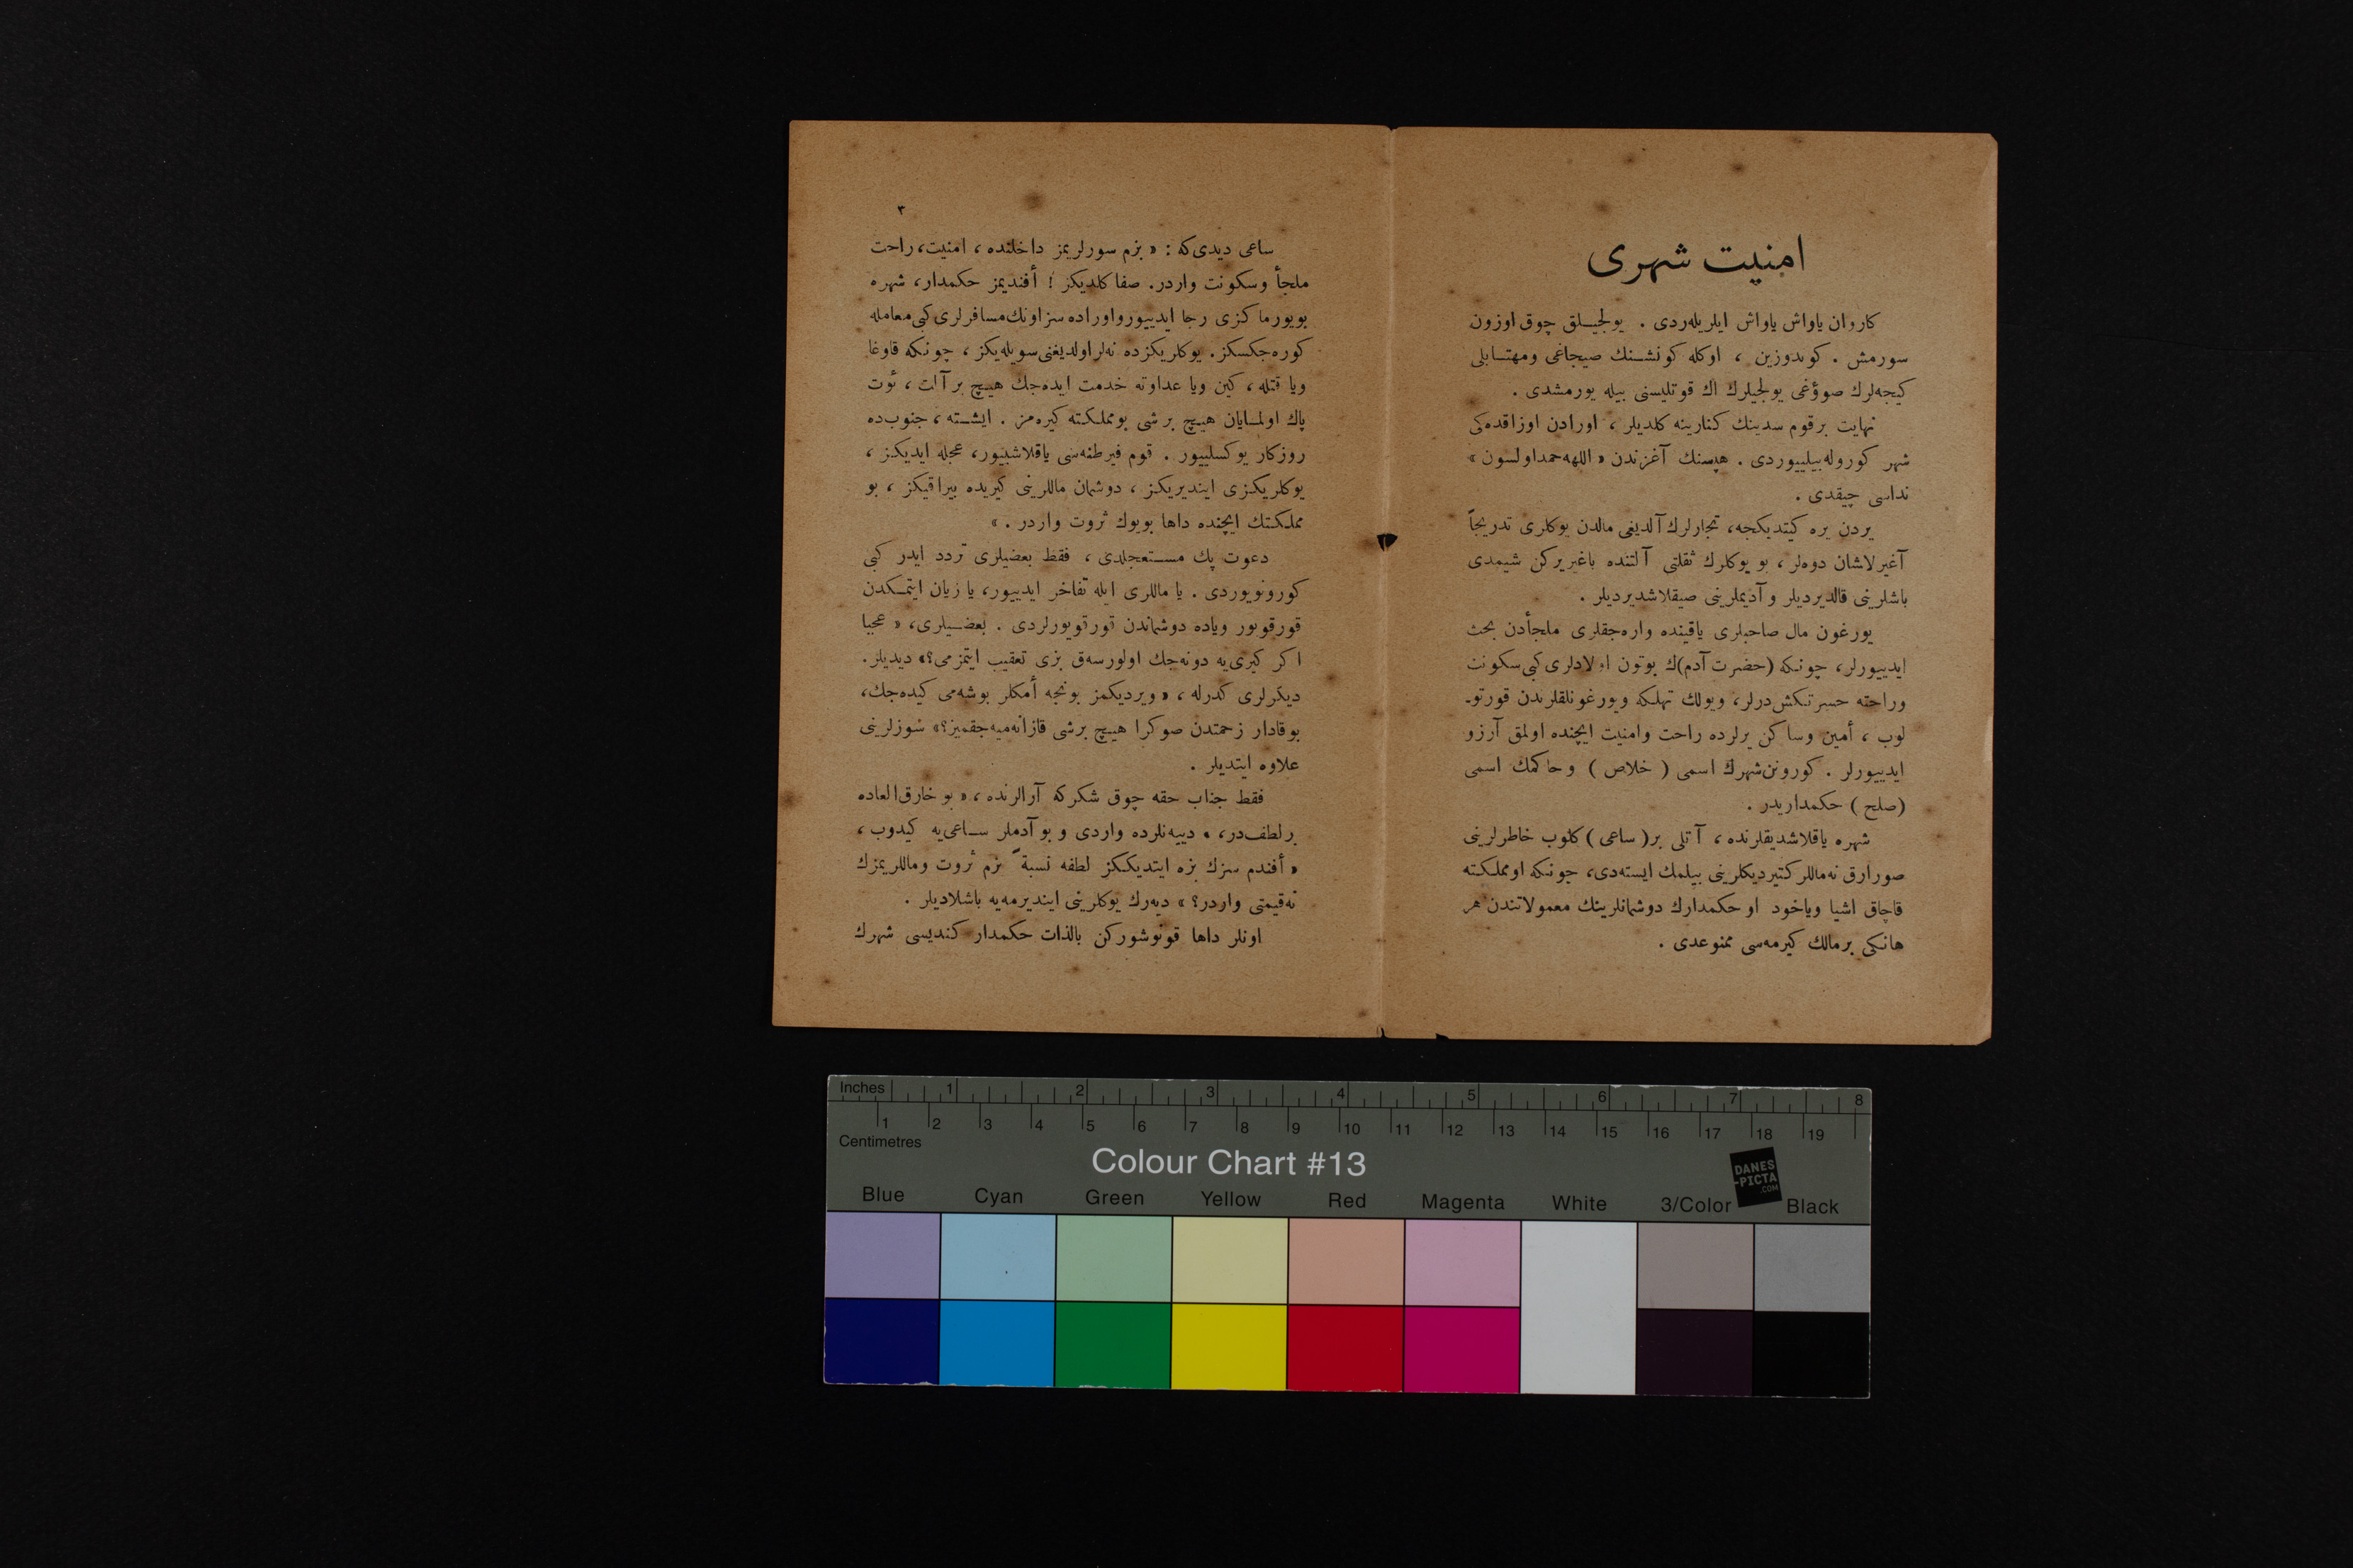 امنیت شهری
كاروان یاواش یاواش ایلریله‌ردی . یولجیلق چوق اوزون
سورمش . كوندوزین ، اوكله كونشنك صیجاغی ومهتابلی
كیجه‌لرك صوؤغی یولجیلرك اك قوتلیسنی بیله یورمشدی .
نهایت برقوم سدینك كنارینه كلدیلر ، اورادن اوزاقده‌كی
شهر كوروله‌بیلییوردی . هپسنك آغزندن « اللهه حمد اولسون »
نداسی چیقدی .
یردن یره كیتدیكجه، تجارلرك آلدیغی مالدن یوكلری تدریجاً
آغیرلاشان دوه‌لر ، بو یوكلرك ثقلتی آلتنده باغیریركن شیمدی
باشلرینی قالدیردیلر و آدیملرینی صیقلاشدیردیلر .
یورغون مال صاحبلری یاقینده واره‌جقلری ملجأدن بحث
ایدییورلر، چونكه (حضرت آدم)ك بوتون اولادلری كبی سكونت
وراحته حسرتكش‌درلر، ویولك تهلكه ویورغونلقلرندن قورتو-
لوب ، أمین وساكن یرلرده راحت وامنیت ایچنده اولمق آرزو
ایدییورلر . كورونن شهرك اسمی ( خلاص ) وحاكمك اسمی
(صلح ) حكمداریدر .
شهره یاقلاشدیقلرنده ، آتلی بر( ساعی ) كلوب خاطرلرینی
صورارق نه‌ماللر كتیردیكلرینی بیلمك ایسته‌دی، چونكه اومملكته
قاچاق اشیا ویاخود او حكمدارك دوشمانلرینك معمولاتندن هر
هانكی برمالك كیرمه‌سی ممنوعدی .
٣
ساعی دیدی‌كه : « بزم سورلریمز داخلنده ، امنیت، راحت
ملجأ وسكونت واردر. صفا كلدیكز ! أفندیمز حكمدار، شهره
بویورماكزی رجا ایدییورواوراده سزاونك‌مسافرلری كبی‌معامله
كوره‌جكسكز. یوكلریكزده نه‌لراولدیغنی‌سویله‌یكز ، چونكه قاوغا
ویا قتله ، كین ویا عداوته خدمت ایده‌جك هیچ بر آلت ، ئوت
پاك اولمایان هیچ برشی بومملكته كیره‌مز . ایشته ، جنوب‌ده
روزكار یوكسلییور . قوم فیرطنه‌سی یاقلاشییور، عجله ایدیكز ،
یوكلریكزی ایندیریكز ، دوشمان ماللرینی كیریده بیراقیكز ، بو
مملكتك ایچنده داها بویوك ثروت واردر . »
دعوت پك مستعجلدی ، فقط بعضیلری تردد ایدر كبی
كورونویوردی . یا ماللری ایله تفاخر ایدییور، یا زیان ایتمكدن
قورقویور ویاده دوشماندن ئورتویورلردی . بعضیلری، « عجبا
اكر كیری‌یه دونه‌جك اولورسه‌ق بزی تعقیب ایتمزمی؟» دیدیلر.
دیكرلری كدرله ، « ویردیكمز بونجه أمكلر بوشه‌می كیده‌جك،
بوقادار زحمتدن صوكرا هیچ برشی قازانه‌میه‌جقمیز؟» سوزلرینی
علاوه ایتدیلر .
فقط جناب حقه چوق شكركه آرالرنده ، « بو خارق‌العاده
برلطف‌در، » دییه‌نلرده واردی و بو آدملر ساعی‌یه كیدوب ،
« أفندم سزك بزه ایتدیككز لطفه نسبةً بزم ثروت وماللریمزك
نه‌قیمتی واردر؟ » دیه‌رك یوكلرینی ایندیرمه‌یه باشلادیلر .
اونلر داها قونوشوركن بالذات حكمدار كندیسی شهرك
Inches 1 2 3 4 5 6 7 8
1 2 3 4 5 6 7 8 9 10 11 12 13 14 15 16 17 18 19
Centimetres
Colour Chart #13
DANES
-PICTA
.COM
Blue Cyan Green Yellow Red Magenta White 3/Color Black